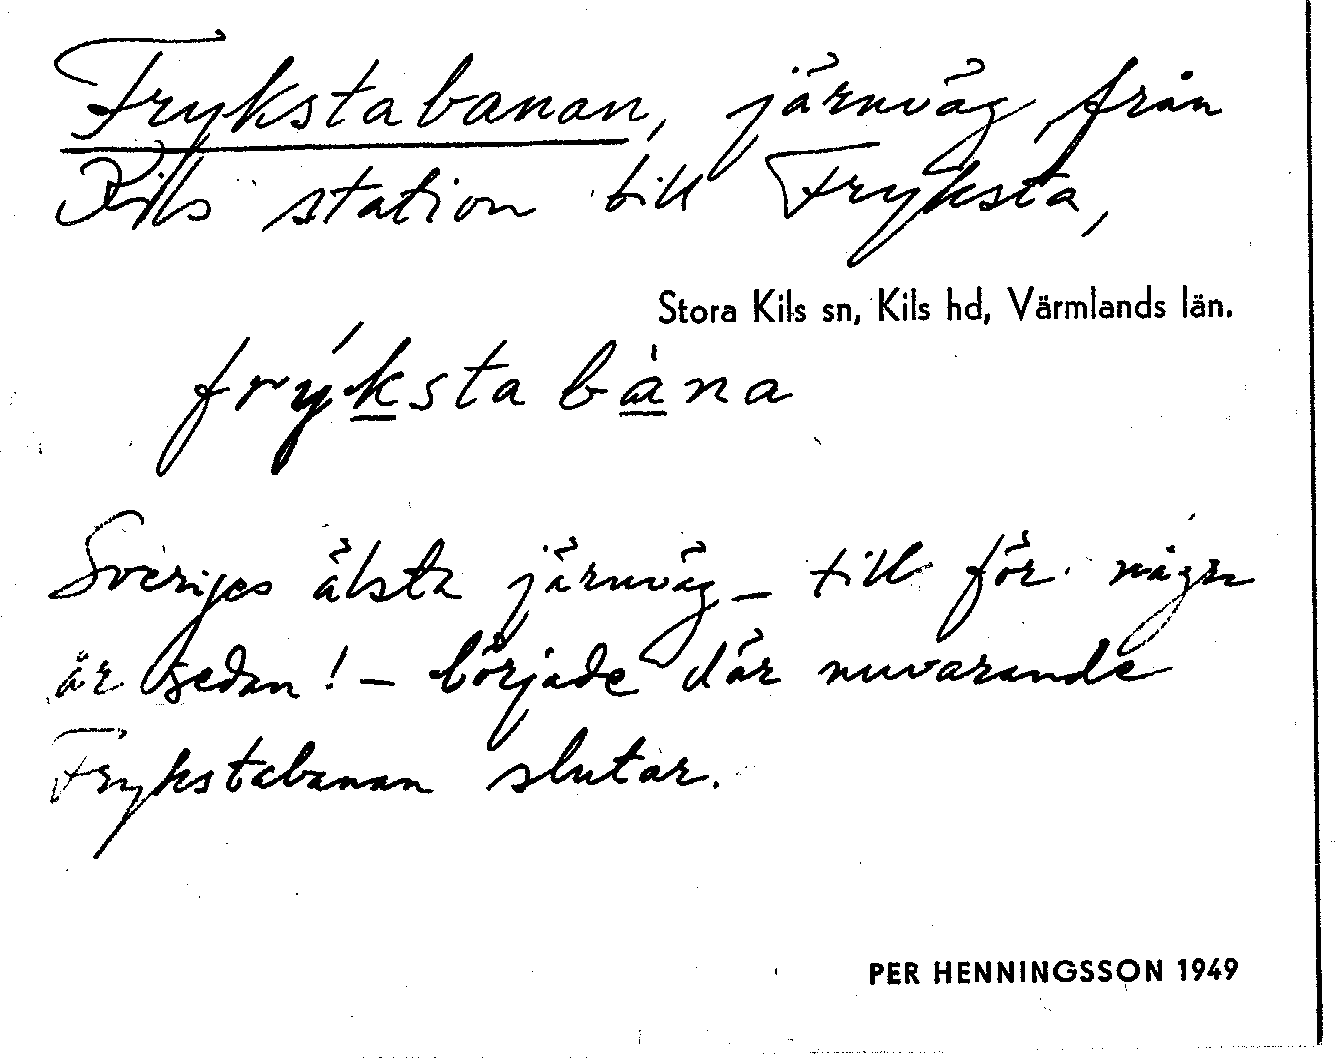 Frykstabanan, järnväg från
Kils station till Fryksta,
Stora Kils sn, Kils hd, Värmlands län.
frýksta bàna
Sveriges älsta järnväg – till för några
år sedan! – började där nuvarande
Frykstabanan slutar.
PER HENNINGSSON 1949